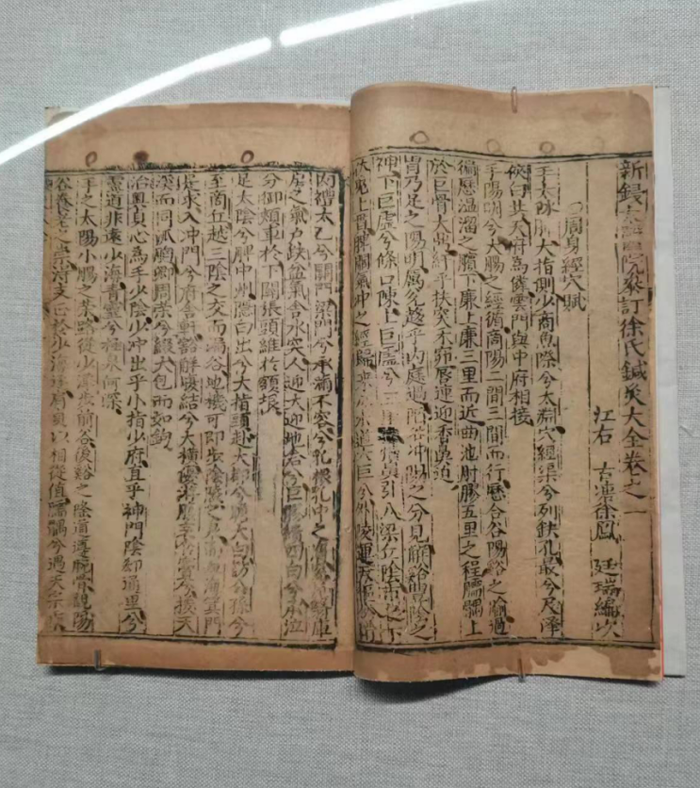 新鋟太醫院參訂徐氏鍼灸大全卷之一
江右 古濂徐鳳 廷瑞編次
周身經穴賦
手太陰肺大指側少商魚際兮太淵穴經渠兮列缺孔最兮尺澤
俠白共天府為隣雲門與中府相接
手陽明兮大腸之經循商陽二間三間而行歷合谷陽谿之腧過
徧歷溫溜之濱下廉上廉三里而近曲池肘髎五里之程臑髃上
於巨骨大鼎紆乎扶突禾窌唇連迎香鼻迫
胃乃足之陽明厲兌趨乎內庭過陷谷冲陽之分見解谿豐隆之
神下巨虛兮條口陳上巨虛兮三里仍犢鼻引入梁丘陰市之下
伏兔上貫髀關氣冲之經歸來兮水道大巨兮外陵運天樞兮滑
肉禮太乙兮關門梁門兮承滿不容兮乳根乳中之膺窗屋翳庫
房之氣戶缺盆氣舍水突人迎大迎地倉兮巨髎續四白兮承泣
分御頰車於下關張頭維於額垠
足太陰兮脾中州隱白出兮大指頭赴大都兮瞻太白訪公孫兮
至商丘越三陰之交而漏谷地機可即步陰陵之泉而血海箕門
是求入冲門兮府舍軒豁解腹結兮大橫優游腹哀食竇兮接天
溪而同派胸鄉周榮兮綴大包而如鉤
治夫真心為手少陰少冲出乎小指少府直乎神門陰郄通里兮
靈道非遠少海青靈兮極泉何深
手之太陽小腸之榮路從少澤步前谷後谿之隆道遵腕骨觀陽
谷養老之崇得支正於少海逐肩貞以相從值臑髃兮遇天宗乘